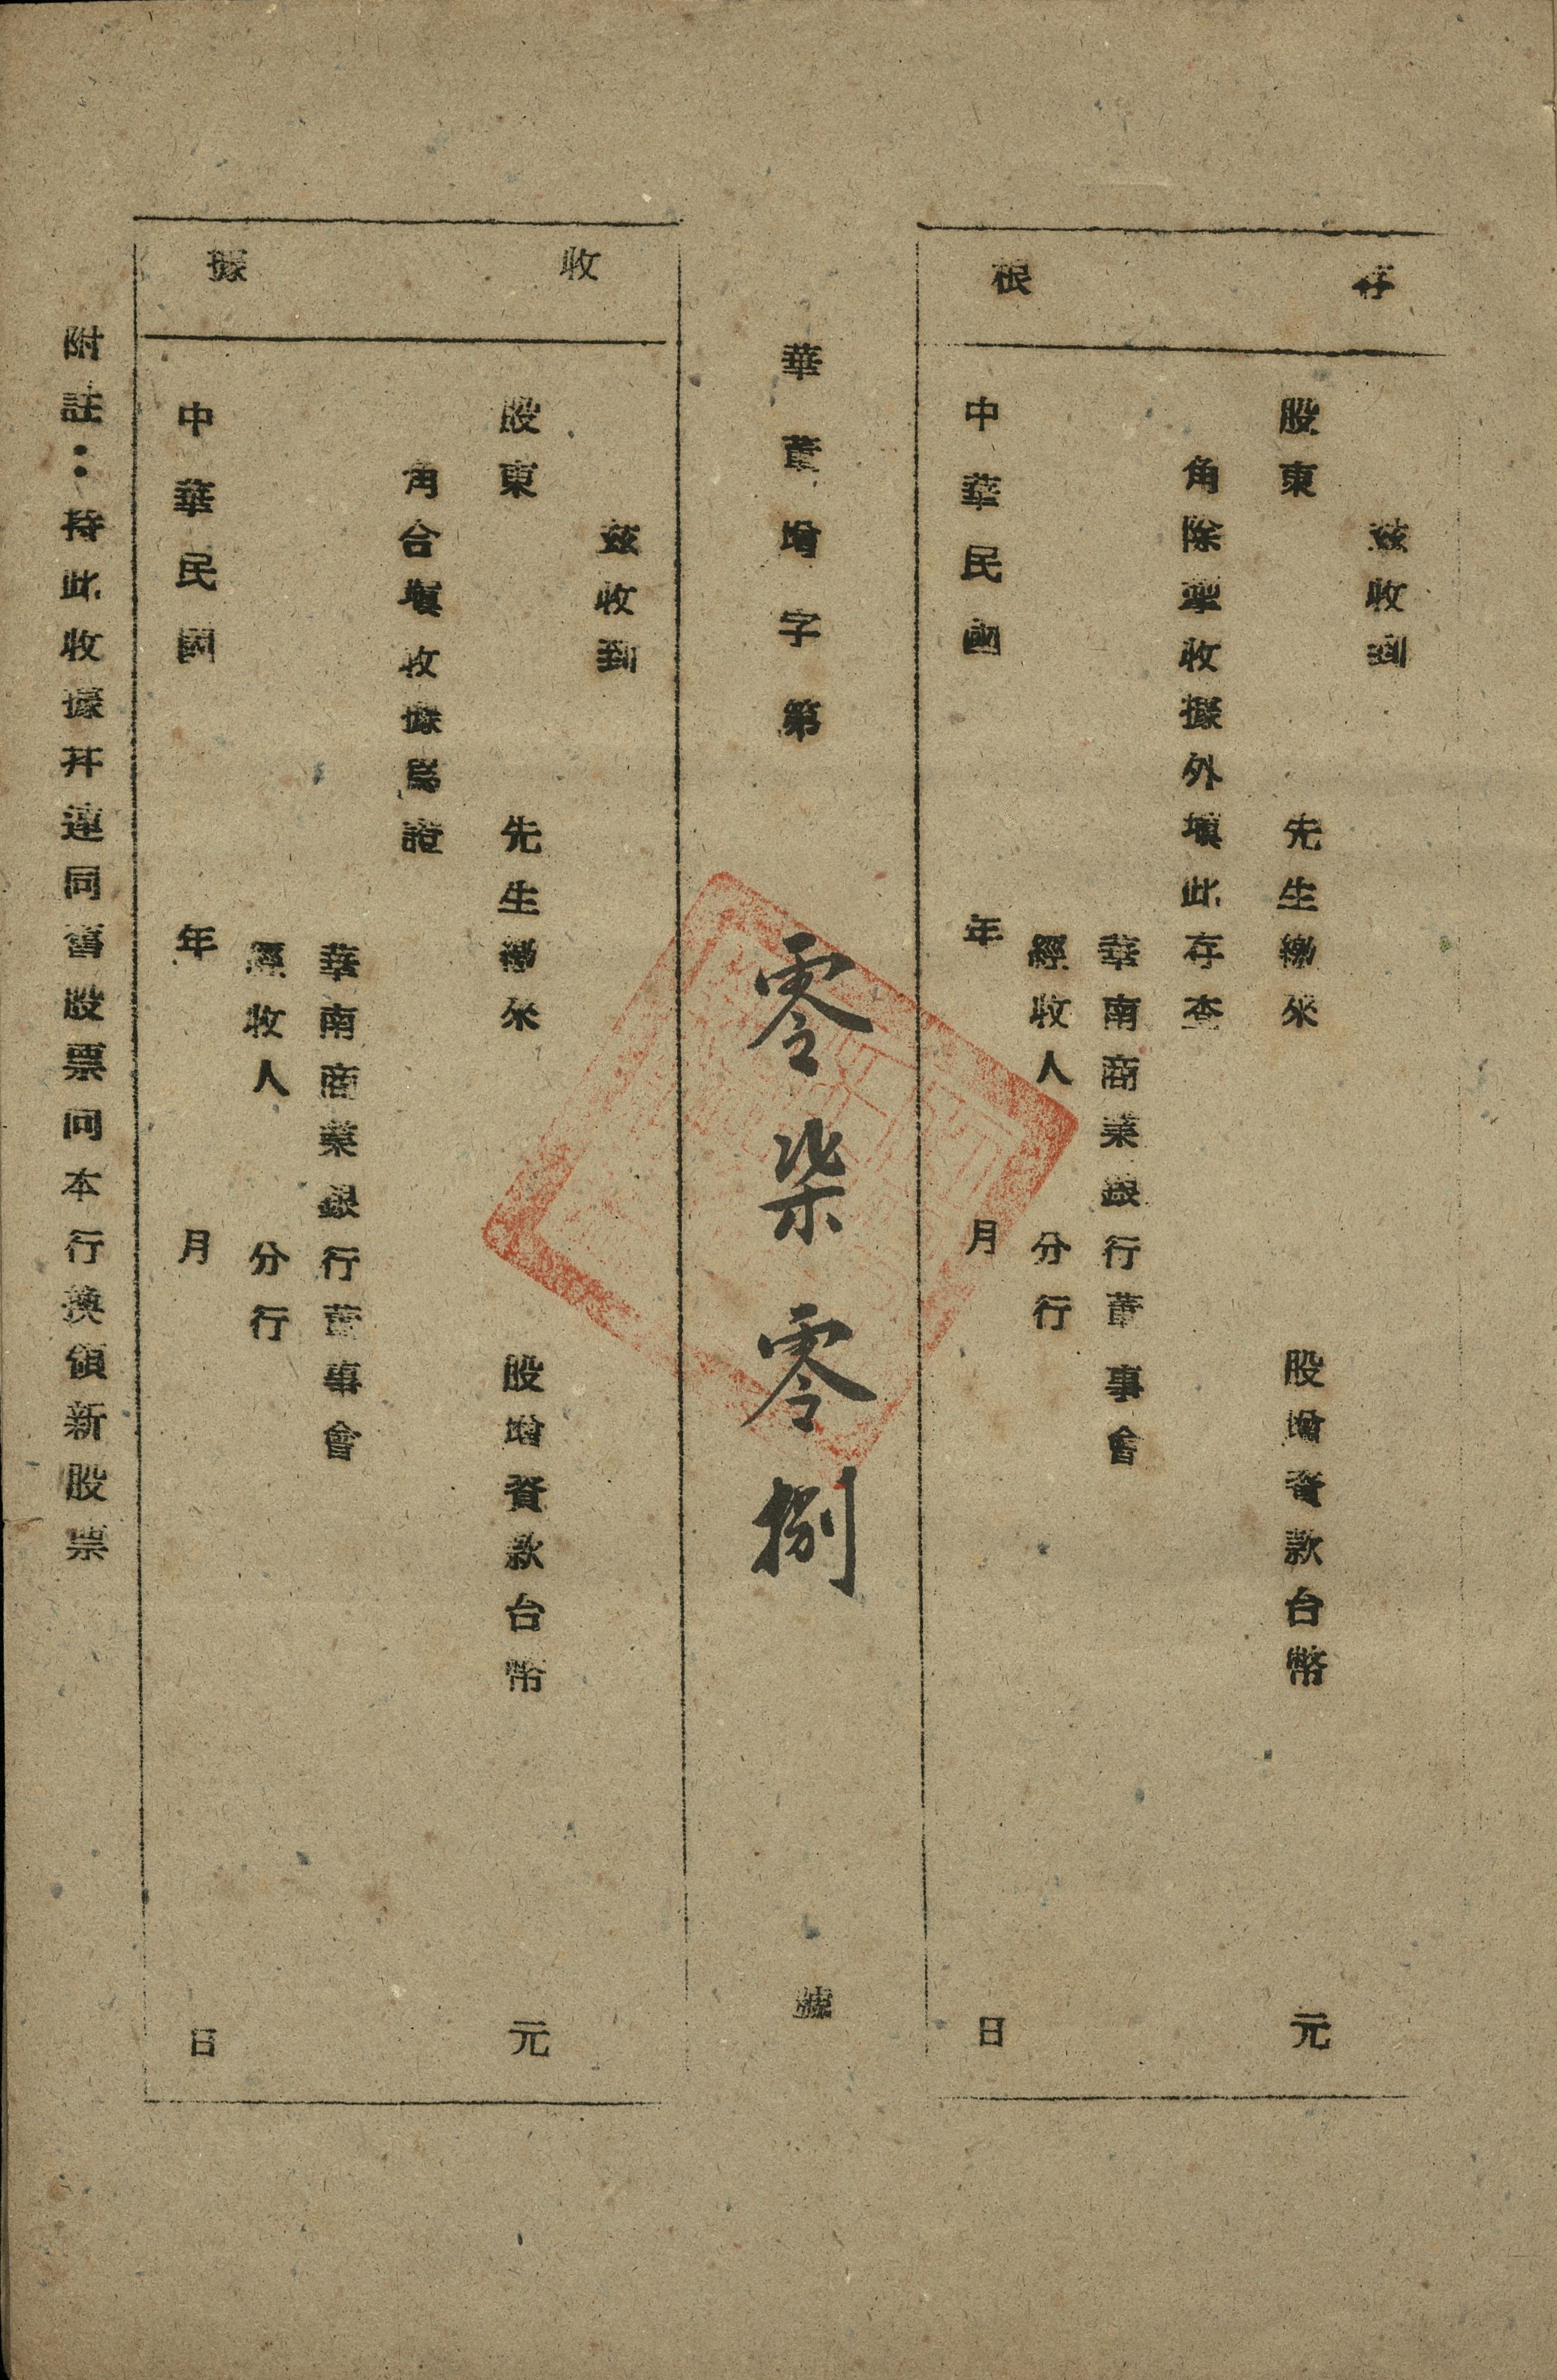 存根
茲收到
股東　先生繳來　股增資款台幣　元
角除掣收據外填此存查
華南商業銀行董事會
經收人　分行
中華民國　年　月　日
華董增字第零柒零捌號
收據
茲收到
股東　先生繳來　股增資款台幣　元
角合填收據爲證
華南商業銀行董事會
經收人　分行
中華民國　年　月　日
附註：持此收據幷連同舊股票向本行換領新股票